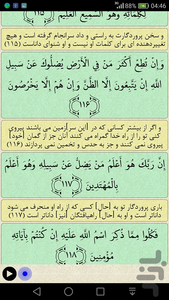 04:46
لِكَلِمَاتِهِ وَهُوَ السَّمِيعُ الْعَلِيمُ ﴿١١٥﴾
و سخن پروردگارت به راستی و داد سرانجام گرفته است و هیچ
تغییردهنده ای برای کلمات او نیست و او شنوای داناست (۱۱۵)
وَإِن تُطِعْ أَكْثَرَ مَن فِي الْأَرْضِ يُضِلُّوكَ عَن سَبِيلِ
اللَّهِ إِن يَتَّبِعُونَ إِلَّا الظَّنَّ وَإِنْ هُمْ إِلَّا يَخْرُصُونَ
﴿١١٦﴾
و اگر از بیشتر کسانی که در [این سر]زمین می باشند پیروی
کنی تو را از راه خدا گمراه می کنند آنان جز از گمان [خود]
پیروی نمی کنند و جز به حدس و تخمین نمی پردازند (۱۱۶)
إِنَّ رَبَّكَ هُوَ أَعْلَمُ مَن يَضِلُّ عَن سَبِيلِهِ وَهُوَ أَعْلَمُ
بِالْمُهْتَدِينَ ﴿١١٧﴾
باری پروردگار تو به [حال] کسی که از راه او منحرف می شود
داناتر است و او به [حال] راهیافتگان [نیز] داناتر است (۱۱۷)
فَكُلُوا مِمَّا ذُكِرَ اسْمُ اللَّهِ عَلَيْهِ إِن كُنتُمْ بِآيَاتِهِ
مُؤْمِنِينَ ﴿١١٨﴾